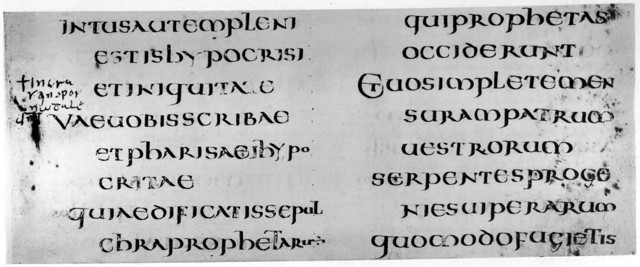 INTUSAUTEMPLENI
ESTISHYPOCRISI
ETINIQUITATE
VAEUOBISSCRIBAE
ETPHARISAEIHYPO
CRITAE
QUIAEDIFICATISSEPUL
CHRAPROPHETARUM
QUIPROPHETAS
OCCIDERUNT
ETUOSIMPLETEMEN
SURAMPATRUM
UESTRORUM
SERPENTESPROGE
NIESUIPERARUM
QUOMODOFUGIETIS